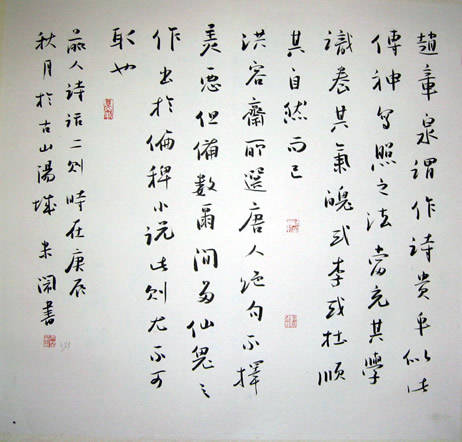 趙章泉謂作詩貴乎似此
傳神寫照之法當充其學
識養其氣魄或李或杜順
其自然而已
洪容齋所選唐人絕句不擇
美惡但備數爾間多仙鬼之
作出於稗小說此則尤不可
取也
人詩話二則時在庚辰
秋月於古山陽城朱書